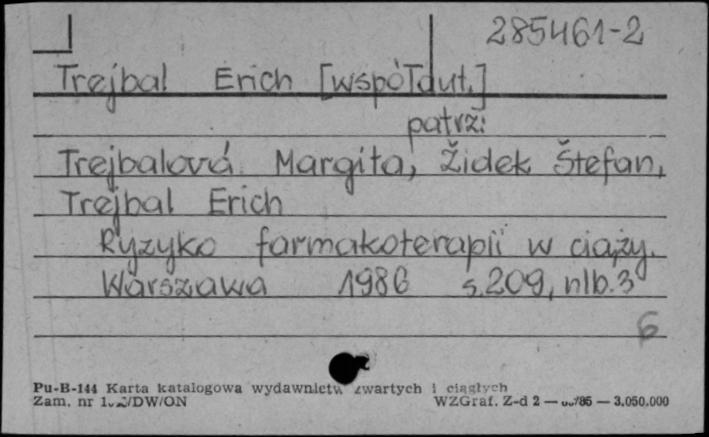 285461-2
Trejbal Erich [współaut.]
patrz:
Trejbalová Margita, Židek Štefan,
Trejbal Erich
Ryzyko farmakoterapii w ciąży.
Warszawa 1986 s.209, nlb.3
6
Pu-B-144 Karta katalogowa wydawnictw zwartych i ciągłych
Zam. nr /DW/ON WZGraf. Z-d 2 — /85 — 3.050.000